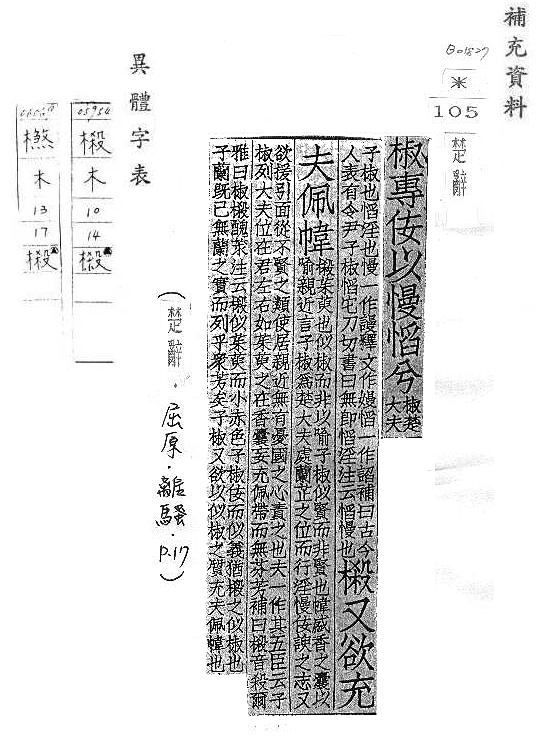 補充資料
B01827
木
105
楚辭
椒專佞以慢慆兮椒楚大夫
子椒也慆淫也慢一作謾釋文作嫚慆一作謟補曰古今
人表有令尹子椒慆屯刀切書曰無即慆淫注云慆慢也樧又欲充
夫佩幃樧茱萸也似椒而非以喻子椒似賢而非賢也幃盛香之囊以
喻親近言子椒為楚大夫處蘭芷之位而行淫慢佞諛之志又
欲援引面從不賢之類使居親近無有憂國之心責之也夫一作其五臣云子
椒列大夫位在君左右如茱萸之在香囊妄充佩帶而無芬芳補曰樧音殺爾
雅曰椒樧醜莍注云樧似茱萸而小赤色子椒佞而似義猶樧之似椒也
子蘭既已無蘭之實而列乎眾芳矣子椒又欲以似椒之質充夫佩幃也
(楚辭.屈原.離騷.P.17)
異體字表
05954
樧
木
10
14
樧
木
13
17
樧